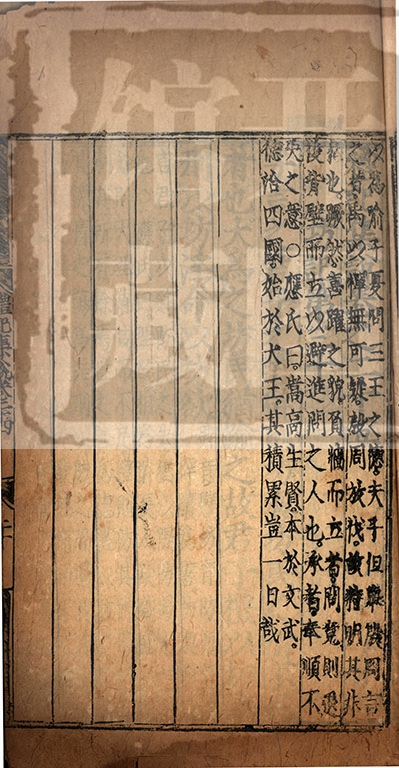 以為喻子夏問三王之德夫子但舉殷周言
之者禹以禪無可疑殷周放伐故特明其非
私也蹶然喜躍之貌負牆而立者問竟則退
後背壁而立以避進問之人也承者奉順不
失之意○應氏曰嵩高生賢本於文武
德洽四國始於大王其積累豈一日哉